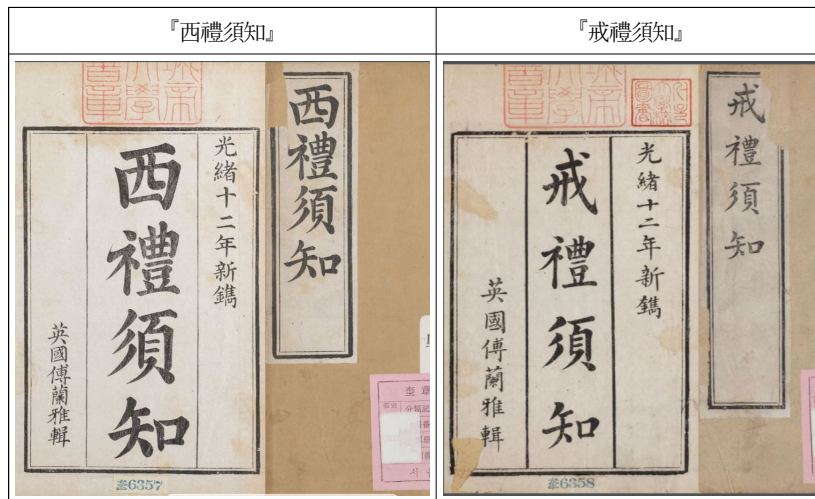 『西禮須知』
『戒禮須知』
光緒十二年新鐫
西禮須知
英國傅蘭雅輯
西禮須知
奎6357
光緒十二年新鐫
戒禮須知
英國傅蘭雅輯
戒禮須知
奎6358